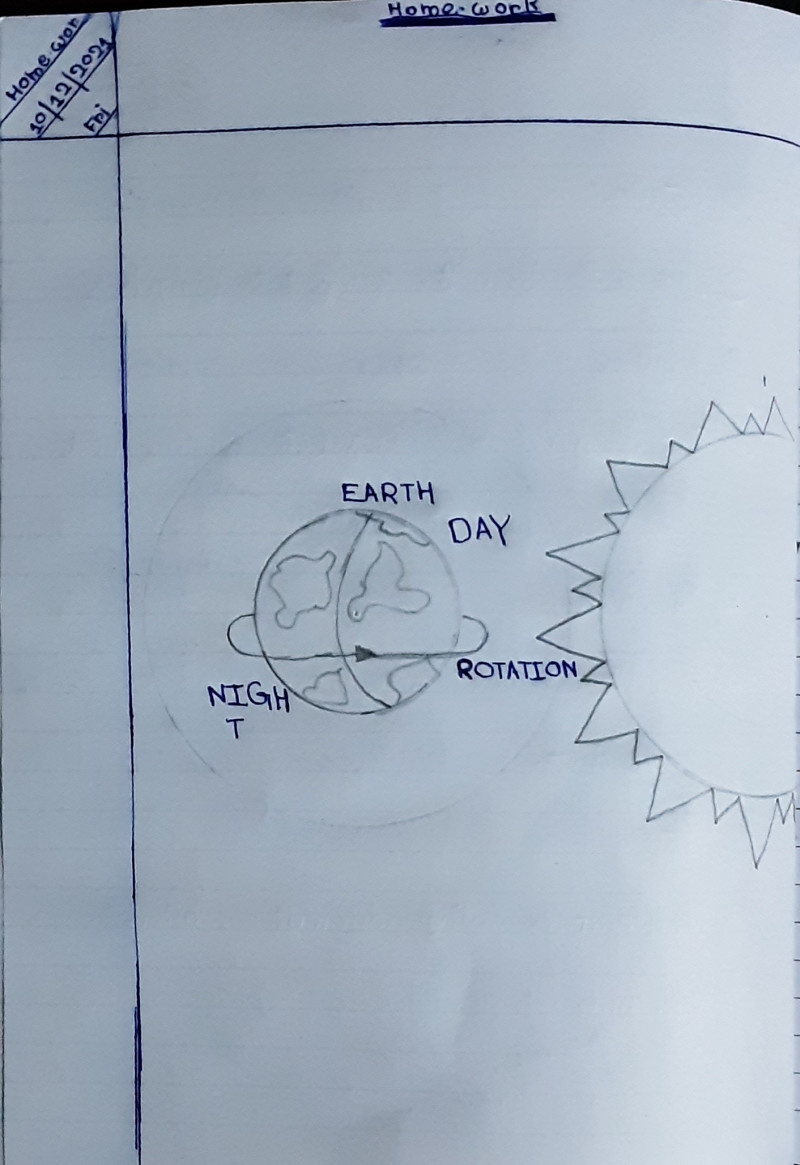 Home-work
Home wor
10/12/2021
Fri
EARTH
DAY
ROTATION
NIGH
T